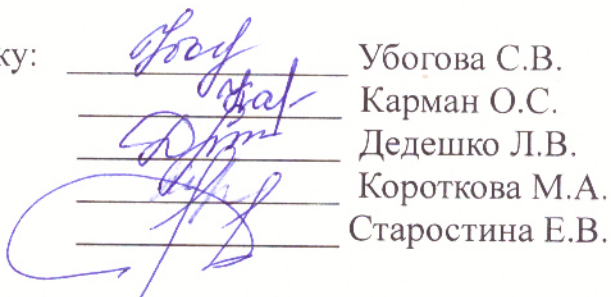 ку: Убогова С.В.
Карман О.С.
Дедешко Л.В.
Короткова М.А.
Старостина Е.В.